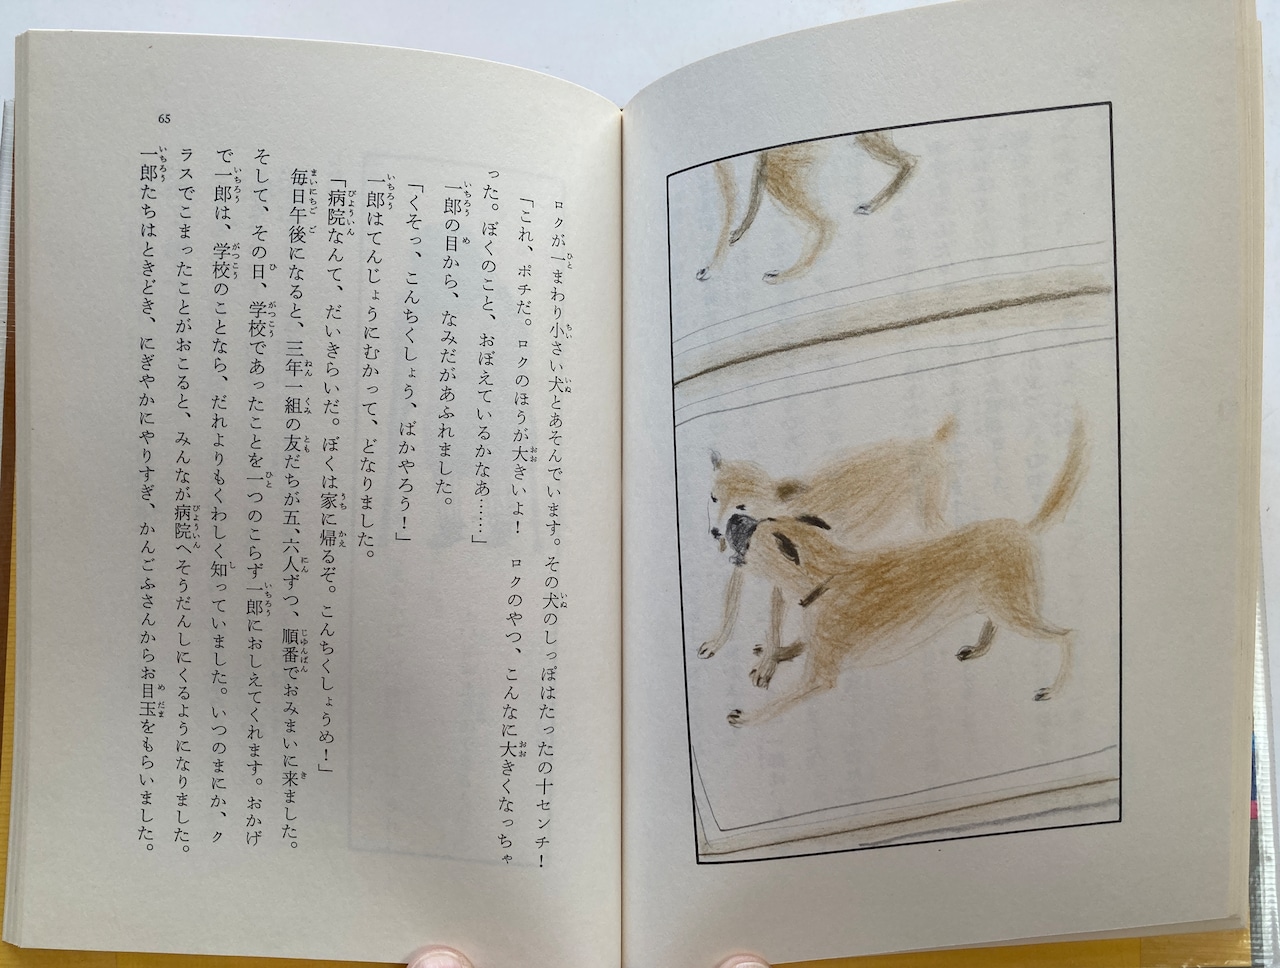 65
ロクが一まわり小さい犬とあそんでいます。その犬のしっぽはたったの十センチ！
「これ、ポチだ。ロクのほうが大きいよ！　ロクのやつ、こんなに大きくなっちゃ
った。ぼくのこと、おぼえているかなあ……」
一郎の目から、なみだがあふれました。
「くそっ、こんちくしょう、ばかやろう！」
一郎はてんじょうにむかって、どなりました。
「病院なんて、だいきらいだ。ぼくは家に帰るぞ。こんちくしょうめ！」
毎日午後になると、三年一組の友だちが五、六人ずつ、順番でおみまいに来ました。
そして、その日、学校であったことを一つのこらず一郎におしえてくれます。おかげ
で一郎は、学校のことなら、だれよりもくわしく知っていました。いつのまにか、ク
ラスでこまったことがおこると、みんなが病院へそうだんしにくるようになりました。
一郎たちはときどき、にぎやかにやりすぎ、かんごふさんからお目玉をもらいました。